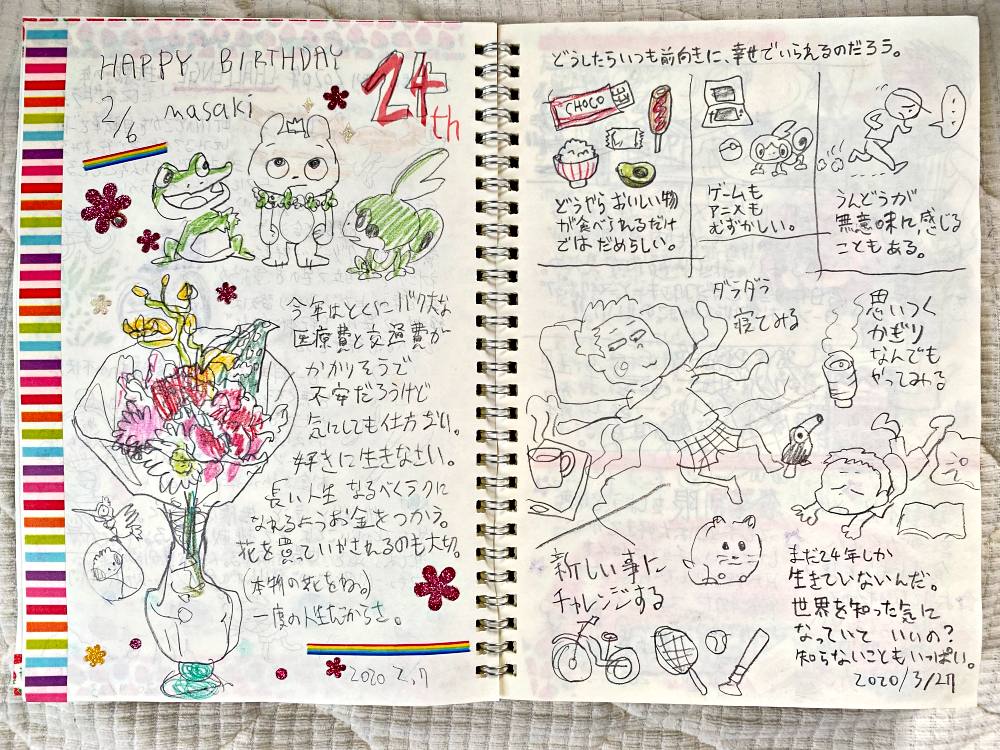 HAPPY BIRTHDAY
24th
2/6 masaki
今年はとくにバク大な
医療費と交通費が
かかりそうで
不安だろうけど
気にしても仕方ない。
好きに生きなさい。
長い人生 なるべくラクに
なれるようお金をつかう。
花を買っていかされるのも大切。
(本物の花をね。)
一度の人生だからさ。
2020 2.17
どうしたらいつも前向きに、幸せでいられるのだろう。
CHOCO
どうやらおいしい物
が食べられるだけ
では だめらしい。
ゲームも
アニメも
むずかしい。
...
うんどうが
無意味に感じる
こともある。
ダラダラ
寝てみる
思いつく
かぎり
なんでも
やってみる
新しい事に
チャレンジする
まだ24年しか
生きていないんだ。
世界を知った気に
なっていて いいの?
知らないこともいっぱい。
2020/3/27